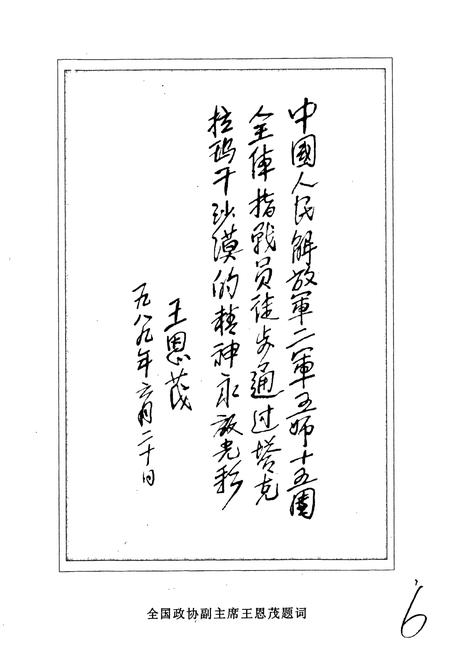 中國人民解放軍二軍五师十五團
全体指戰员徒步通过塔克
拉玛干沙漠的精神永放光彩
王恩茂
一九八九年六月二十日
全国政协副主席王恩茂题词
6